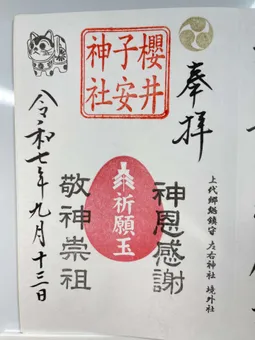 奉拝
上代郷総鎮守 左右神社 境外社
櫻井
子安
神社
神恩感謝
祈願玉
敬神崇祖
令和七年九月十三日